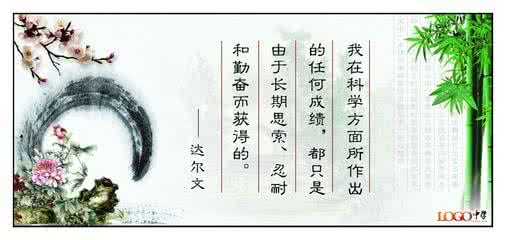 我在科学方面所作出
的任何成绩，都只是
由于长期思索、忍耐
和勤奋而获得的。
——达尔文
LOGO中学